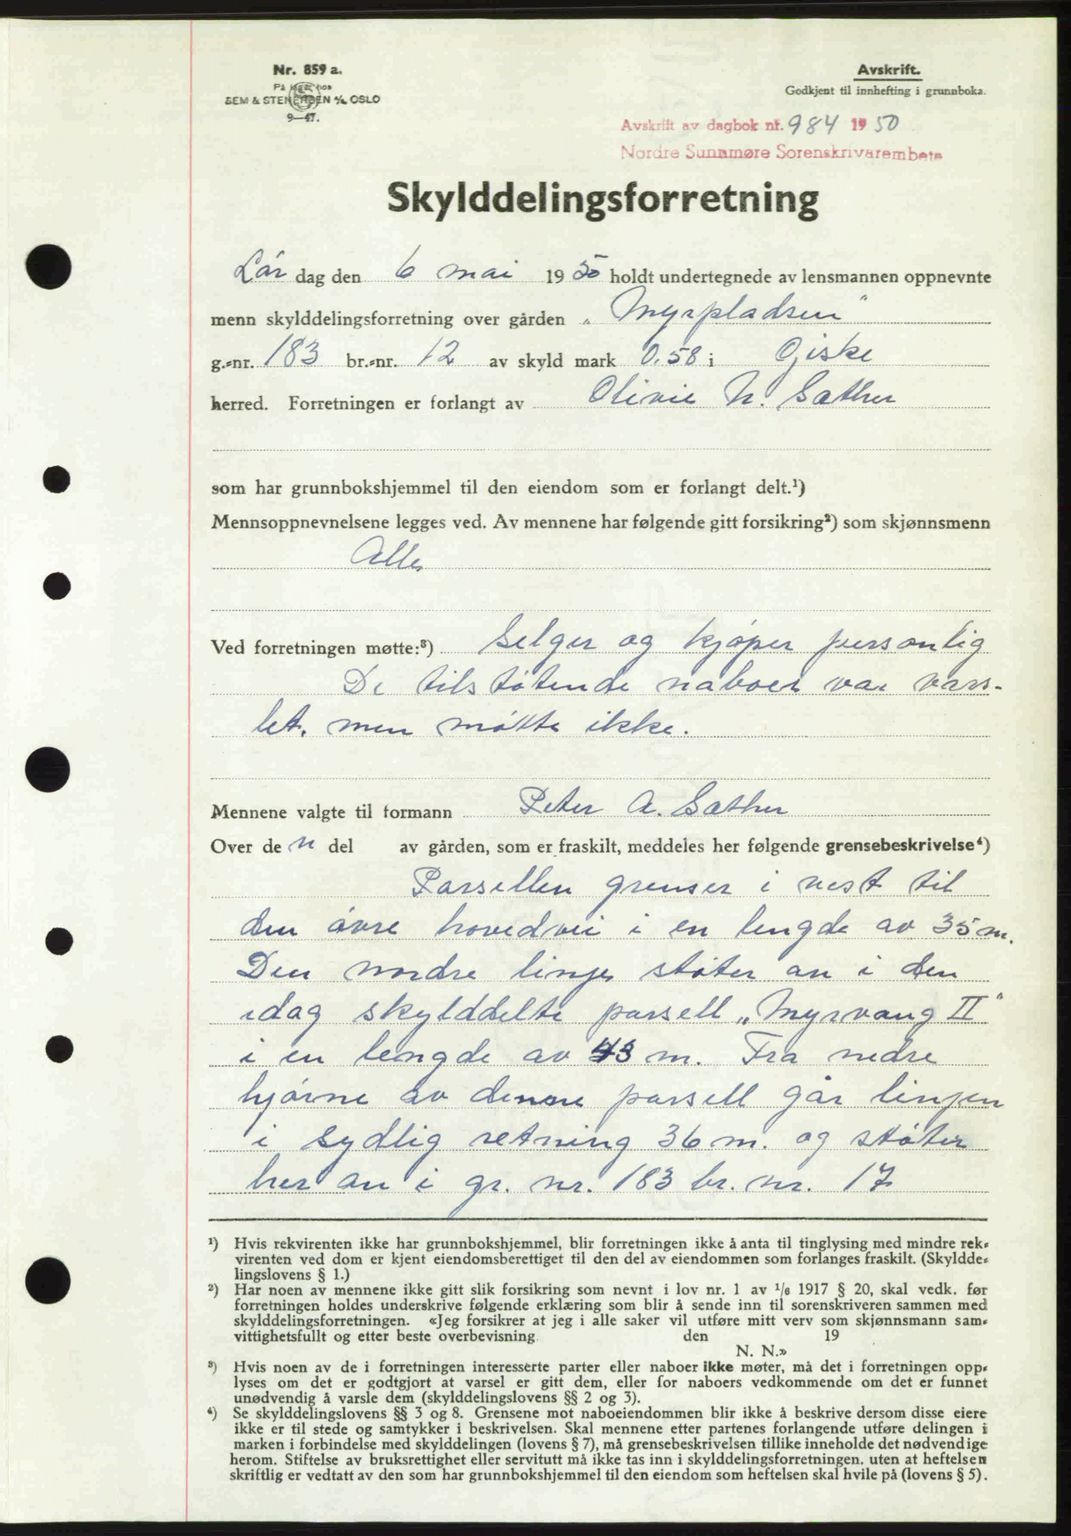 Nr. 859 a.
På lager hos
SEM & STENERSEN A/S OSLO
9—47.
Avskrift.
Godkjent til innhefting i grunnboka.
Avskrift av dagbok nr. 984 1950
Nordre Sunnmøre Sorenskrivarembete
Skylddelingsforretning
Lør dag den 6 mai 1950 holdt undertegnede av lensmannen oppnevnte
menn skylddelingsforretning over gården „Myrpladsen“
g.-nr. 183 br.-nr. 12 av skyld mark 0.58 i Giske
herred. Forretningen er forlangt av Olivie N. Sæther
som har grunnbokshjemmel til den eiendom som er forlangt delt.¹)
Mennsoppnevnelsene legges ved. Av mennene har følgende gitt forsikring²) som skjønnsmenn
Alle
Ved forretningen møtte:³) Selger og kjøper personlig
De tilstøtende naboer var vars-
let, men møtte ikke.
Mennene valgte til formann Peter A. Sæther
Over den del av gården, som er fraskilt, meddeles her følgende grensebeskrivelse⁴)
Parsellen grenser i vest til
den øvre hovedvei i en lengde av 35 m.
Den nordre linje støter an i den
idag skylddelte parsell „Myrvang II“
i en lengde av 43 m. Fra nedre
hjørne av denne parsell går linjen
i sydlig retning 36 m. og støter
her an i gr. nr. 183 br. nr. 17
¹) Hvis rekvirenten ikke har grunnbokshjemmel, blir forretningen ikke å anta til tinglysing med mindre rek-
virenten ved dom er kjent eiendomsberettiget til den del av eiendommen som forlanges fraskilt. (Skyldde-
lingslovens § 1.)
²) Har noen av mennene ikke gitt slik forsikring som nevnt i lov nr. 1 av 1/6 1917 § 20, skal vedk. før
forretningen holdes underskrive følgende erklæring som blir å sende inn til sorenskriveren sammen med
skylddelingsforretningen. «Jeg forsikrer at jeg i alle saker vil utføre mitt verv som skjønnsmann sam-
vittighetsfullt og etter beste overbevisning. den 19
N. N.»
³) Hvis noen av de i forretningen interesserte parter eller naboer ikke møter, må det i forretningen opp-
lyses om det er godtgjort at varsel er gitt dem, eller for naboers vedkommende om det er funnet
unødvendig å varsle dem (skylddelingslovens §§ 2 og 3).
⁴) Se skylddelingslovens §§ 3 og 8. Grensene mot naboeiendommen blir ikke å beskrive dersom disse eiere
ikke er til stede og samtykker i beskrivelsen. Skal mennene etter partenes forlangende utføre delingen i
marken i forbindelse med skylddelingen (lovens § 7), må grensebeskrivelsen tillike inneholde det nødvendige
herom. Stiftelse av bruksrettighet eller servitutt må ikke tas inn i skylddelingsforretningen, uten at heftelsen
skriftlig er vedtatt av den som har grunnbokshjemmel til den eiendom som heftelsen skal hvile på (lovens § 5).